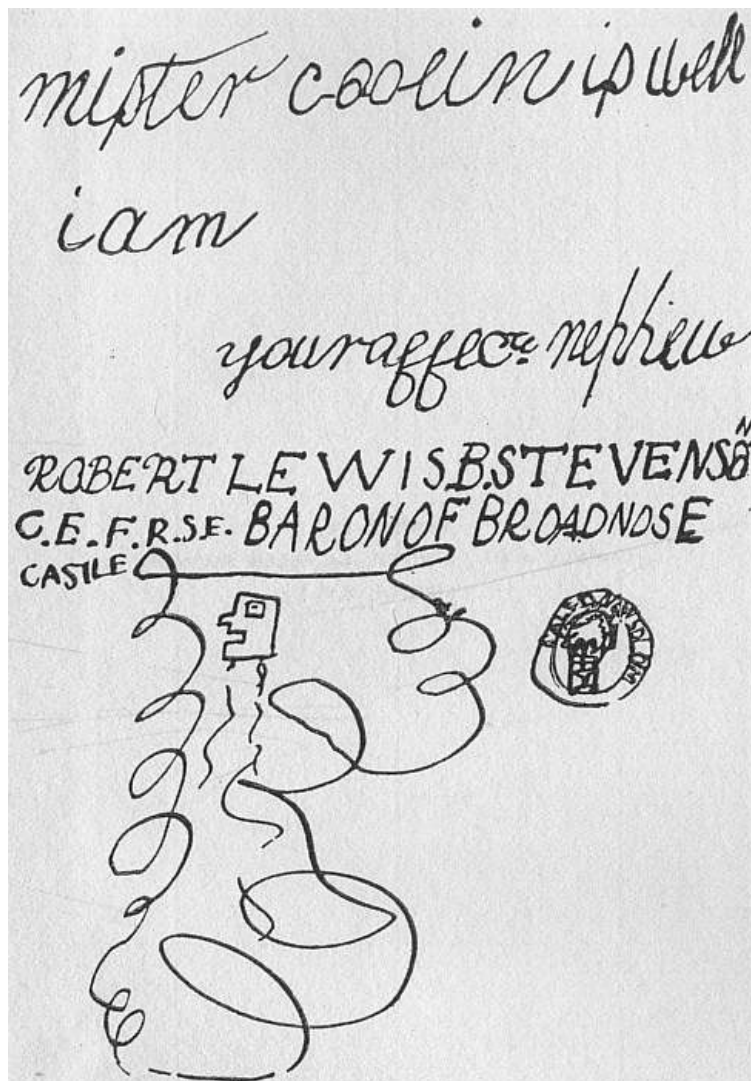 mister coolin is well
i am
your affecte nephew
ROBERT LEWIS.B.STEVENSON
C.E.F.R.S.E. BARON OF BROADNOSE
CASTLE